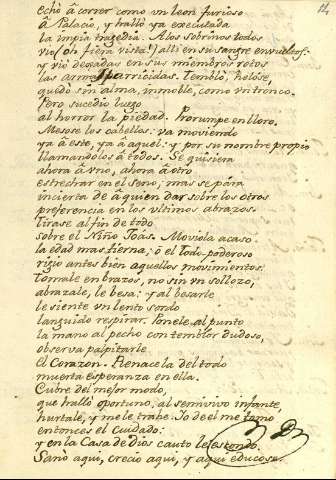 echò à correr como un leon furioso
à Palacio, y hallò ya executada
la impia tragedia. A los sobrinos todos
viò (oh fiera vista!) alli en su sangre envueltos:
y viò dexadas en sus miembros rotos
las armas parricidas. Temblò, helòse,
quedò sin alma, inmoble, como un tronco.
Pero sucediò luego
al horror la piedad. Prorumpe en lloro.
Mesose los cabellos: va moviendo
ya à este, ya à aquel: y por su nombre propio
llamandolos à todos. Se quisiera
ahora à vno, ahora à otro
estrechar en el seno; mas se pára
incierta de à quien dar sobre los otros
preferencia en los vltimos abrazos.
Tirase al fin de todo
sobre el Niño Joas. Moviòla acaso
la edad mas tierna; ò el todo-poderoso
rigiò antes bien aquellos movimientos.
Tomale en brazos, no sin vn sollozo,
abrazale, le besa: y al besarle
le siente vn lento sordo
languido respirar. Ponele al punto
la mano al pecho con temblor dudoso,
observa palpitarle
el Corazon. Renacela del todo
muerta esperanza en ella.
Cubre del mejor modo,
que hallò oportuno, al semivivo infante,
hurtale, y me le trahe. Yo de el me tomo
entonces el Cuidado:
y en la Casa de Dios cauto le escondo.
Sanò aqui, creciò aqui, y aqui educose